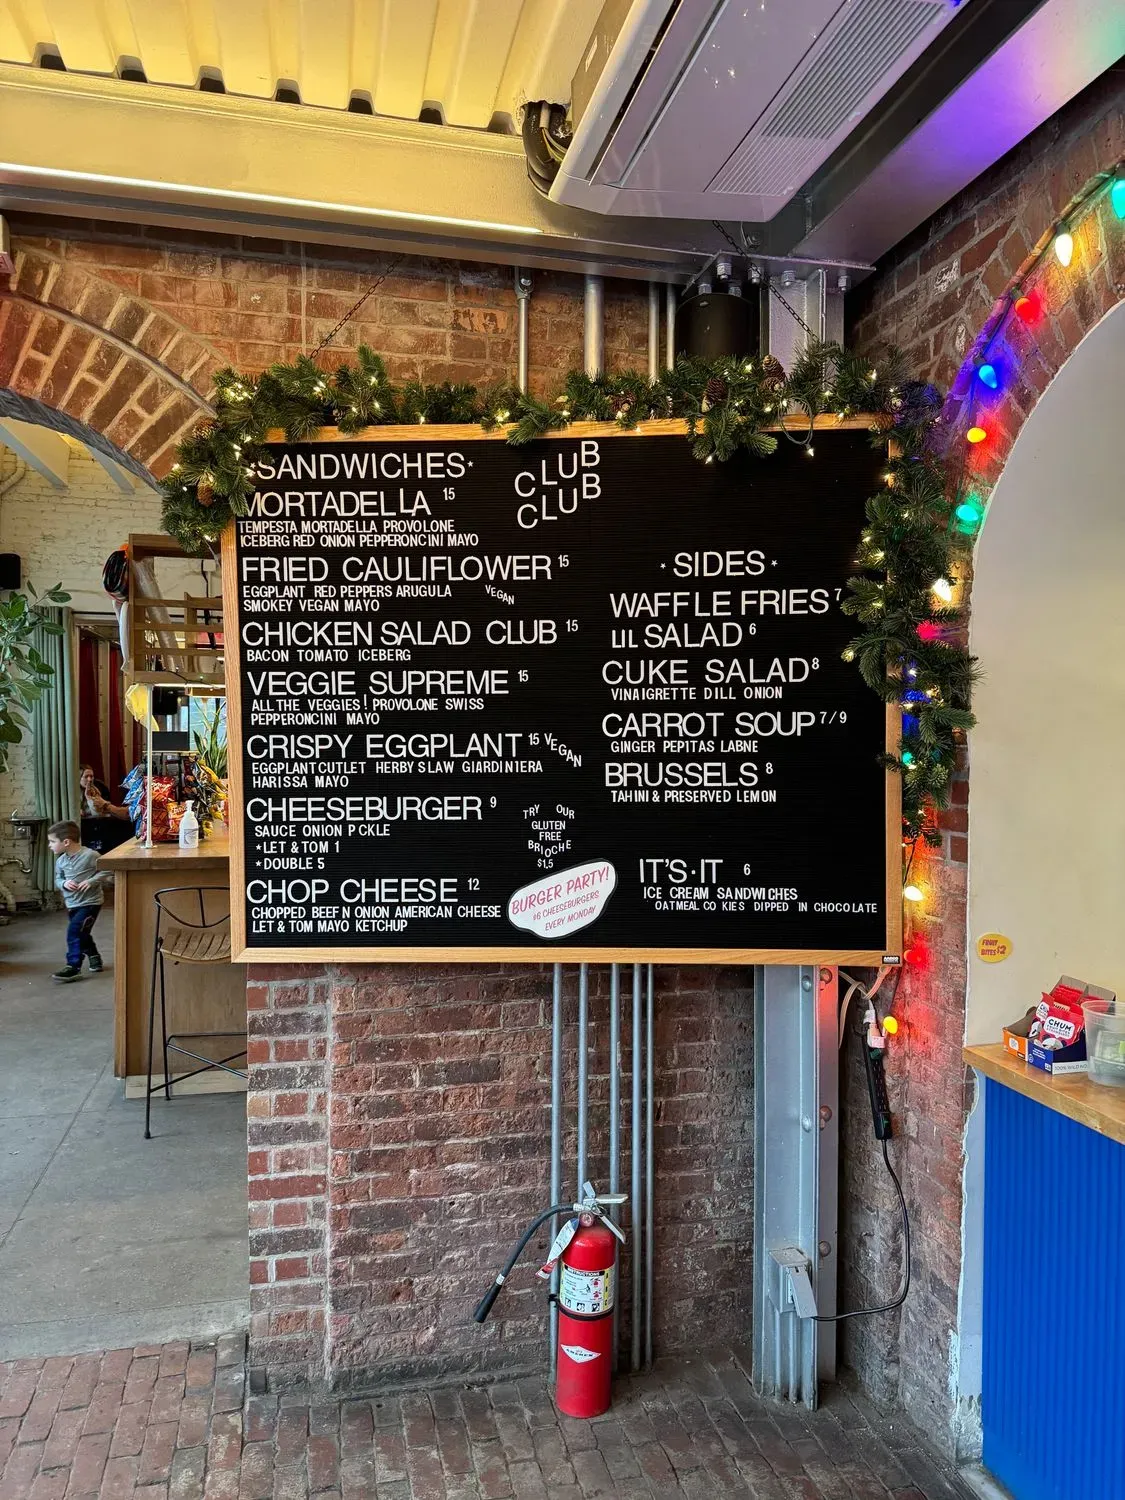 *SANDWICHES*
MORTADELLA 15
TEMPESTA MORTADELLA PROVOLONE
ICEBERG RED ONION PEPPERONCINI MAYO
FRIED CAULIFLOWER 15
EGGPLANT RED PEPPERS ARUGULA VEGAN
SMOKEY VEGAN MAYO
CHICKEN SALAD CLUB 15
BACON TOMATO ICEBERG
VEGGIE SUPREME 15
ALL THE VEGGIES! PROVOLONE SWISS
PEPPERONCINI MAYO
CRISPY EGGPLANT 15 VEGAN
EGGPLANT CUTLET HERBY SLAW GIARDINIERA
HARISSA MAYO
CHEESEBURGER 9
SAUCE ONION P CKLE
*LET & TOM 1
*DOUBLE 5
CHOP CHEESE 12
CHOPPED BEEF N ONION AMERICAN CHEESE
LET & TOM MAYO KETCHUP
TRY OUR
GLUTEN
FREE
BRIOCHE
$1.5
BURGER PARTY!
$6 CHEESEBURGERS
EVERY MONDAY
CLUB
CLUB
* SIDES *
WAFFLE FRIES 7
LIL SALAD 6
CUKE SALAD 8
VINAIGRETTE DILL ONION
CARROT SOUP 7/9
GINGER PEPITAS LABNE
BRUSSELS 8
TAHINI & PRESERVED LEMON
IT'S·IT 6
ICE CREAM SANDWICHES
OATMEAL CO KIES DIPPED IN CHOCOLATE
FRUIT
BITES $2
CHUM
INSTRUCTIONS